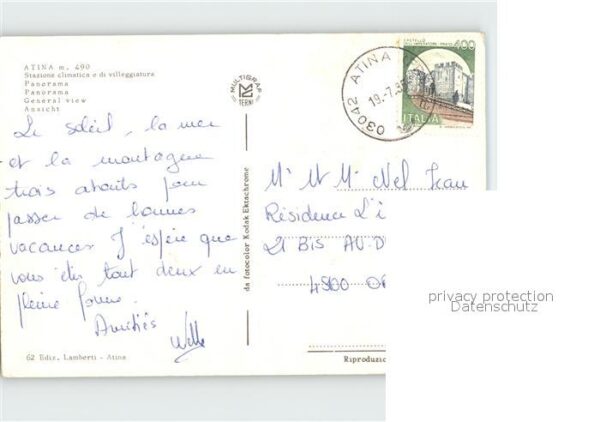 ATINA m. 490
Stazione climatica e di villeggiatura
Panorama
Panorama
General view
Ansicht
MULTIGRAF
TERNI
ATINA
19.7.85
03042
CASTELLO
DELL'IMPERATORE - PRATO
400
ITALIA
Le soleil, la mer
et la montagne
trois atouts pour
passer de bonnes
vacances. J'espère que
vous êtes tout deux en
pleine forme.
Amitiés
da fotocolor Kodak Ektachrome
Mr et Me Nel Jean
Résidence L'
21 BIS AV. D
privacy protection
Datenschutz
62 Ediz. Lamberti - Atina
Riproduzio